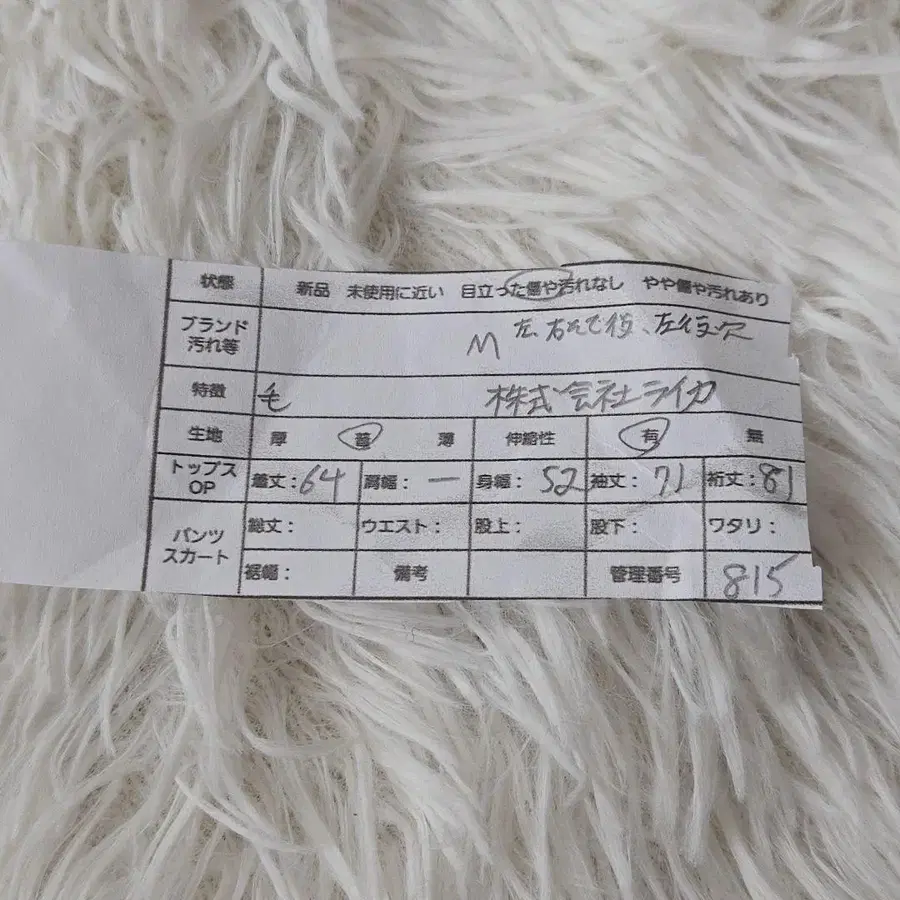 状態 新品 未使用に近い 目立った傷や汚れなし やや傷や汚れあり
ブランド 汚れ等 M 左、右そで
特徴 毛 株式会社ライカ
生地 厚 普 薄 伸縮性 有 無
トップス OP 着丈:64 肩幅:ー 身幅:52 袖丈:71 裄丈:81
パンツ スカート 総丈: ウエスト: 股上: 股下: ワタリ:
裾幅: 備考 管理番号 815